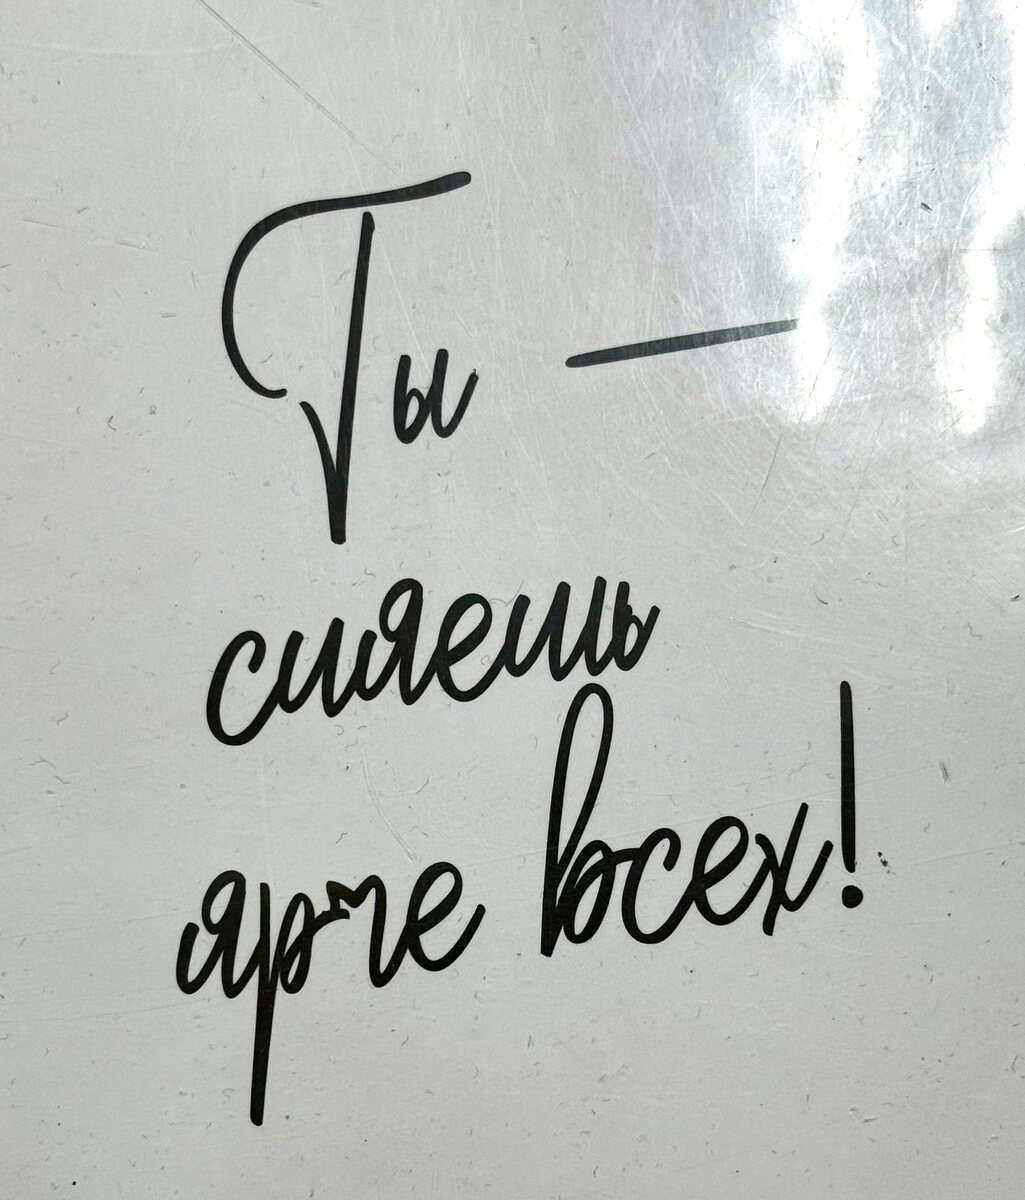 Ты —
сияешь
ярче всех!